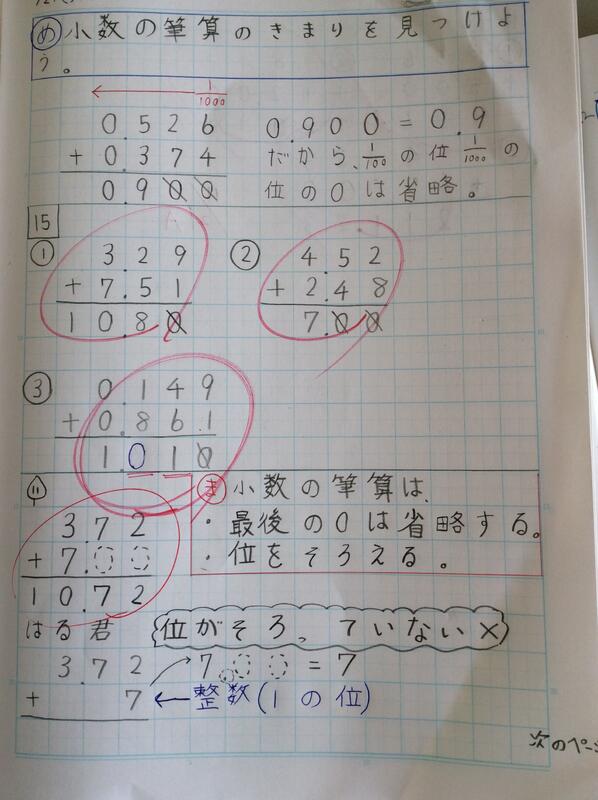 め 小数の筆算のきまりを見つけよ
う。
1/1000
0.526
+0.374
0.900
0.900=0.9
だから、1/100の位1/1000の
位の0は省略。
15
① 3.29
+7.51
10.80
② 4.52
+2.48
7.00
③ 0.149
+0.861
1.010
11
3.72
+7.00
10.72
ま 小数の筆算は、
・最後の0は省略する。
・位をそろえる。
はる君
位がそろっていない×
3.72
+ 7
7.00=7
←整数(1の位)
次のペー